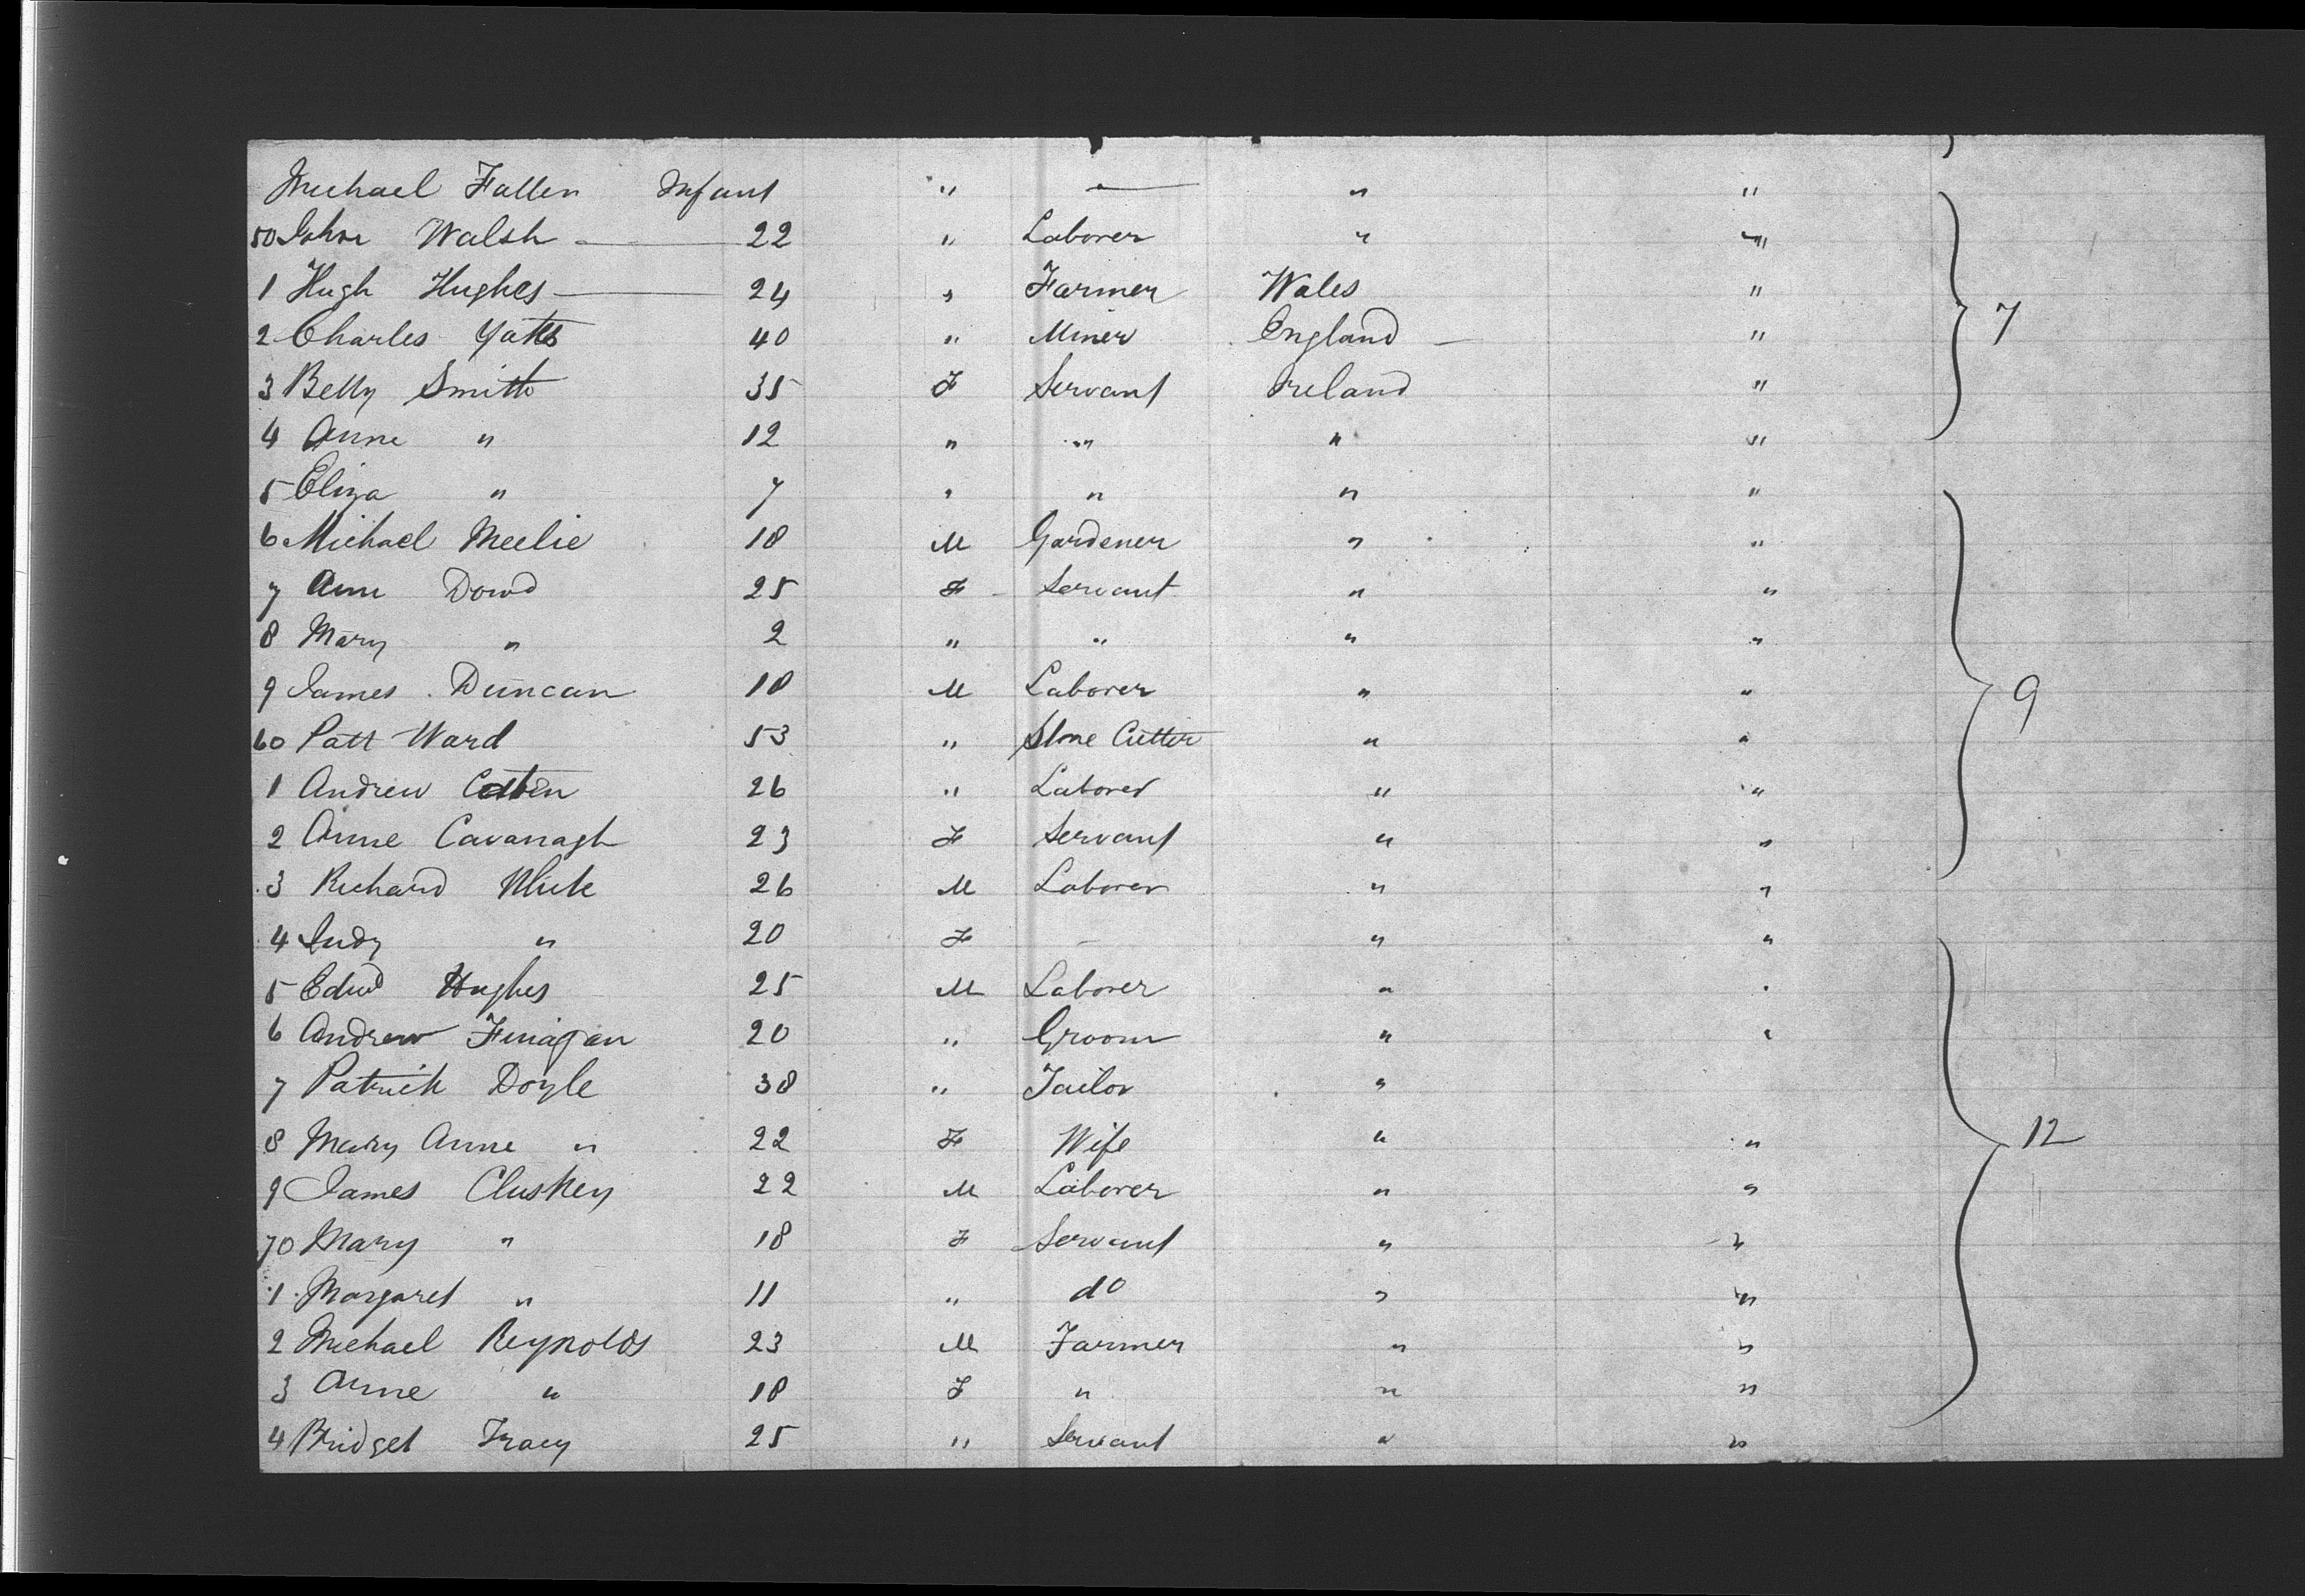 Michael Fallen Infant " — " "
50 John Walsh — 22 " Laborer " "
1 Hugh Hughes — 24 " Farmer Wales "
2 Charles Yates 40 " Miner England — "
3 Betty Smith 35 F Servant Ireland "
4 Anne " 12 " " " "
5 Eliza " 7 " " " "
6 Michael Meelie 18 M Gardener " "
7 Ann Dowd 25 F Servant " "
8 Mary " 2 " " " "
9 James Duncan 18 M Laborer " "
60 Patt Ward 53 " Stone Cutter " "
1 Andrew 26 " Laborer " "
2 Anne Cavanagh 23 F Servant " "
3 Richard 26 M Laborer " "
4 Judy " 20 F – " "
5 Edwd Hughes 25 M Laborer " "
6 Andrew Finagan 20 " Groom " "
7 Patrick Doyle 38 " Tailor "
8 Mary Anne " 22 F Wife " "
9 James Cluskey 22 M Laborer " "
70 Mary " 18 F Servant " "
1 Margaret " 11 " do " "
2 Michael Reynolds 23 M Farmer " "
3 Anne " 18 F " " "
4 Bridget Tracy 25 " Servant " "
7
9
12